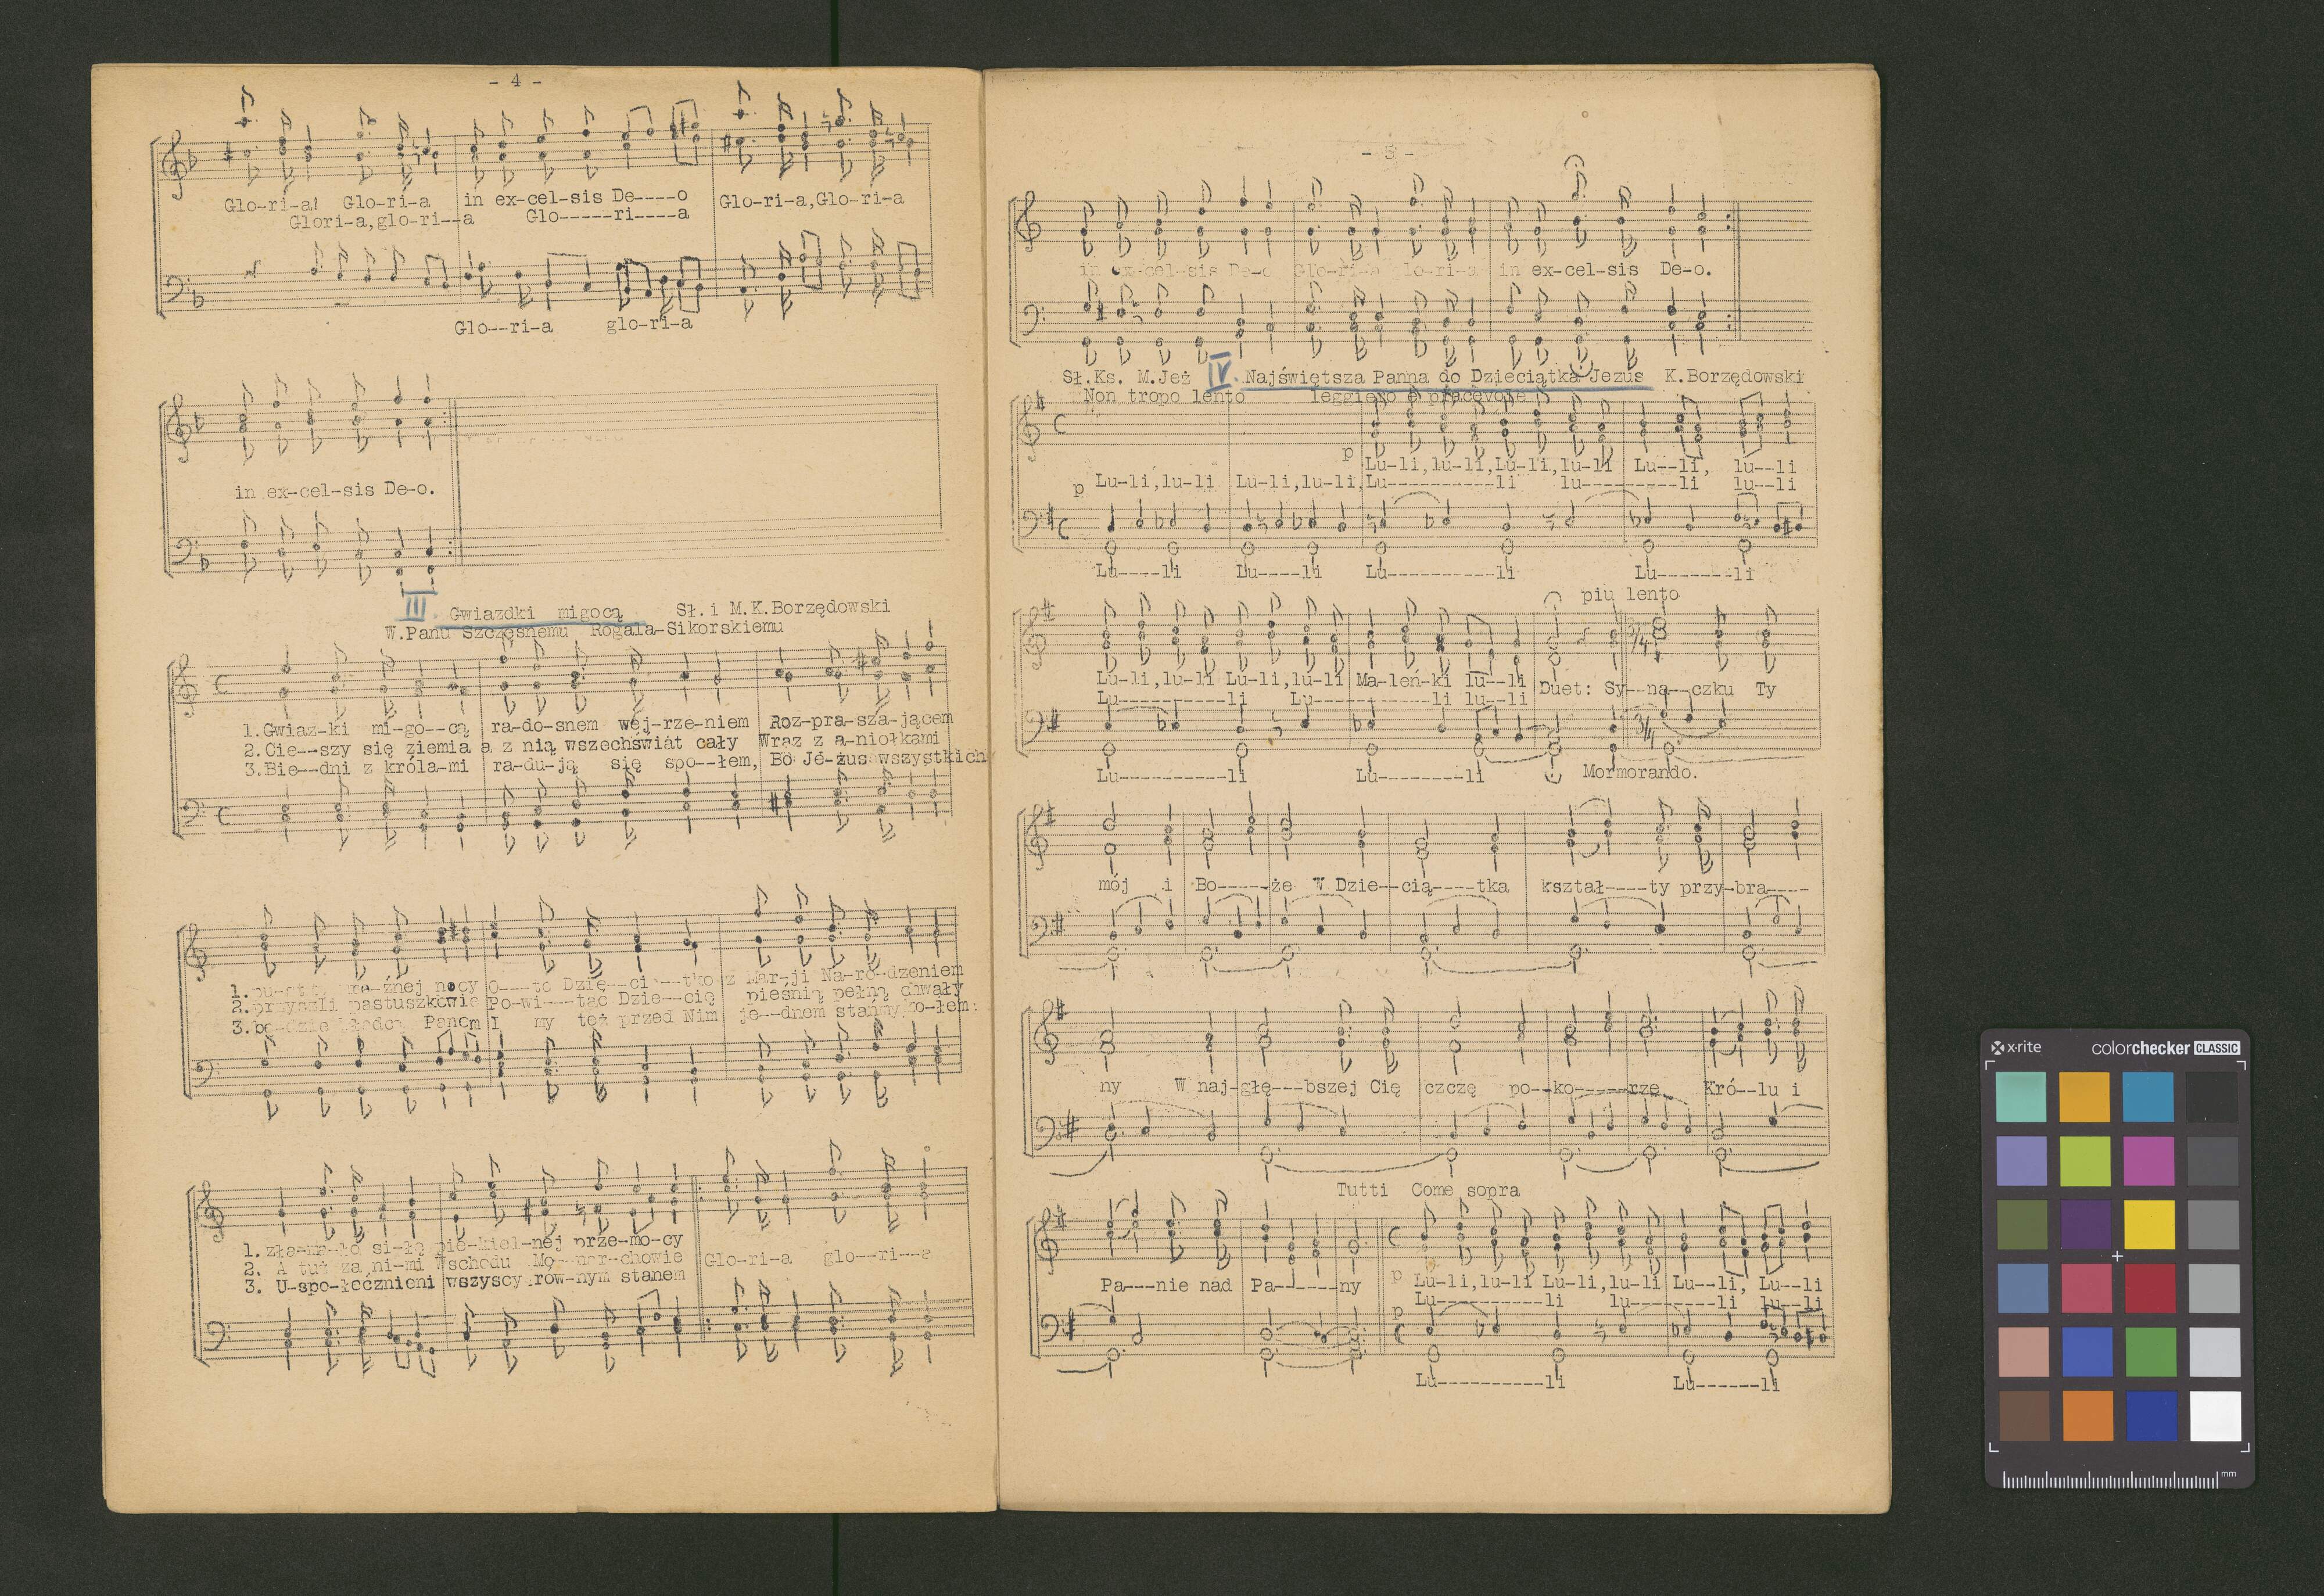 - 4 -
Glo-ri-a! Glo-ri-a in ex-cel-sis De----o Glo-ri-a,Glo-ri-a
Glori-a,glo-ri--a Glo-----ri----a
Glo--ri-a glo-ri-a
in ex-cel-sis De-o.
III. Gwiazdki migocą Sł. i M.K.Borzędowski
W.Panu Szczęsnemu Rogala-Sikorskiemu
1.Gwiaz-ki mi-go--cą ra-do-snem wej-rze-niem Roz-pra-sza-jącem
2.Cie--szy się ziemia a z nią wszechświat cały Wraz z a-niołkami
3.Bie--dni z króla-mi ra-du-ją się spo--łem, Bo Je-zus wszystkich
1. nocy O---to Dzię--ci---tko z Mar-ji Na-ro--dzeniem
2.przyszli pastuszkowie Po-wi---tać Dzie--cię pieśnią pełną chwały
3. Panom I my też przed Nim je--dnem stańmy ko-łem:
1. zła-ma-ło si-łą pie-kiel-nej prze-mo-cy
2. A tuż za ni-mi Wschodu Mo--nar-chowie Glo-ri-a glo--ri--a
3. U-spo-łecznieni wszyscy rów-nym stanem
- 5 -
in ex-cel-sis De-o Glo-ri-a lo-ri-a in ex-cel-sis De-o.
Sł.Ks. M.Jeż IV. Najświętsza Panna do Dzieciątka Jezus K.Borzędowski
Non tropo lento leggiero e piacevole
p Lu-li,lu-li,Lu-li,lu-li Lu--li, lu--li
p Lu-li,lu-li Lu-li,lu-li,Lu----------li lu---------li lu--li
Lu----li Lu----li Lu----------li Lu-------li
piu lento
Lu-li,lu-li Lu-li,lu-li Ma-leń-ki lu--li Duet: Sy--na--czku Ty
Lu----------li Lu-----------li lu--li
Lu----------li Lu--------li Mormorando.
mój i Bo-----że W Dzie--cią----tka kształ----ty przy-bra----
ny W naj-głę---bszej Cię czczę po--ko-----rze Kró--lu i
Tutti Come sopra
Pa---nie nad Pa------ny p Lu-li,lu-li Lu-li,lu-li Lu--li, Lu--li
p Lu----------li lu--------li lu--li
Lu----------li Lu------li
x-rite colorchecker CLASSIC
mm